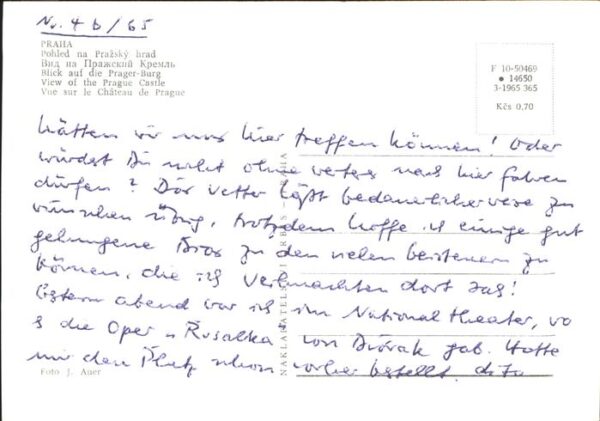 Nr. 4 b / 65
PRAHA
Pohled na Pražský hrad
Вид на Пражский Кремль
Blick auf die Prager-Burg
View of the Prague Castle
Vue sur le Château de Prague
F 10-50469
● 14650
3-1965 365
Kčs 0,70
hätten wir uns hier treffen können! Oder
würdest Du nicht ohne nach hier fahren
dürfen? Das Wetter läßt bedauerlicherweise zu
wünschen übrig, trotzdem hoffe ich einige gut
gelungene Dias zu den vielen beisteuern zu
können, die ich Weihnachten dort sah!
Gestern abend war ich im Nationaltheater, wo
es die Oper „Rusalka" von Dvórak gab. Hatte
mir den Platz schon vorher bestellt.
NAKLADATELSTVÍ ORBIS - PRAHA
Foto J. Auer